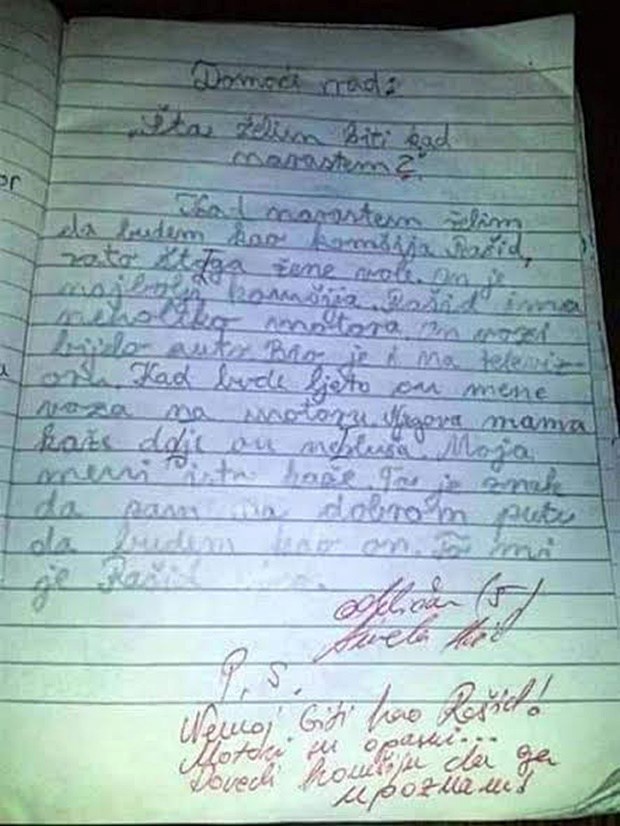 Domaći rad:
"Šta želim biti kad
narastem?"
Kad narastem želim
da budem kao komšija Rašid,
zato što ga žene vole. On je
najbolji komšija. Rašid ima
nekoliko motora. On vozi
bijelo auto. Bio je i na televiz-
oru. Kad bude ljeto on mene
voza na motoru. Njegova mama
kaže da je on neposlušan. Moja
meni isto kaže. To je znak
da sam na dobrom putu
da budem kao on. To mi
je Rašid
Odličan (5)
P.S.
Nemoj biti kao Rašid!
Motori su opasni...
Dovedi komšiju da ga
upoznam!